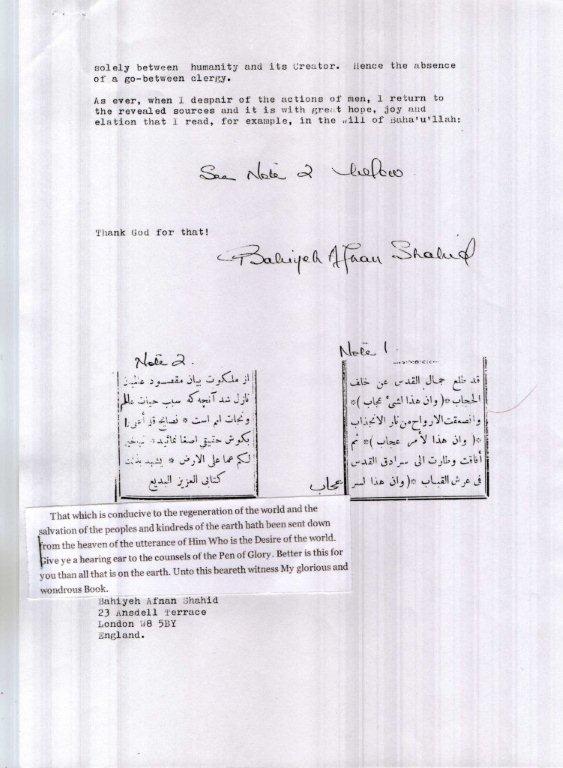 solely between humanity and its Creator. Hence the absence
of a go-between clergy.
As ever, when I despair of the actions of men, I return to
the revealed sources and it is with great hope, joy and
elation that I read, for example, in the will of Baha'u'llah:
See Note 2 below
Thank God for that!
Bahiyeh Afnan Shahid
Note 2.
از ملکوت بیان مقصود عالمیان
نازل شد آنچه که سبب حیات عالم
ونجات امم است * نصایح قلم أعلى را
بگوش حقیقی اصغا نمائید *
لکم عما على الارض * یشهد بذلک
کتابی العزیز البدیع
Note 1.
قد طلع جمال القدس عن خلف
الحجاب *( وان هذا لشئ عجاب )*
وانصعقت الارواح من نار الانجذاب
*( وان هذا لأمر عجاب )* ثم
أفاقت وطارت الى سرادق القدس
فى عرش القباب *( وان هذا لسر
عجاب
That which is conducive to the regeneration of the world and the
salvation of the peoples and kindreds of the earth hath been sent down
from the heaven of the utterance of Him Who is the Desire of the world.
Give ye a hearing ear to the counsels of the Pen of Glory. Better is this for
you than all that is on the earth. Unto this beareth witness My glorious and
wondrous Book.
Bahiyeh Afnan Shahid
23 Ansdell Terrace
London W8 5BY
England.